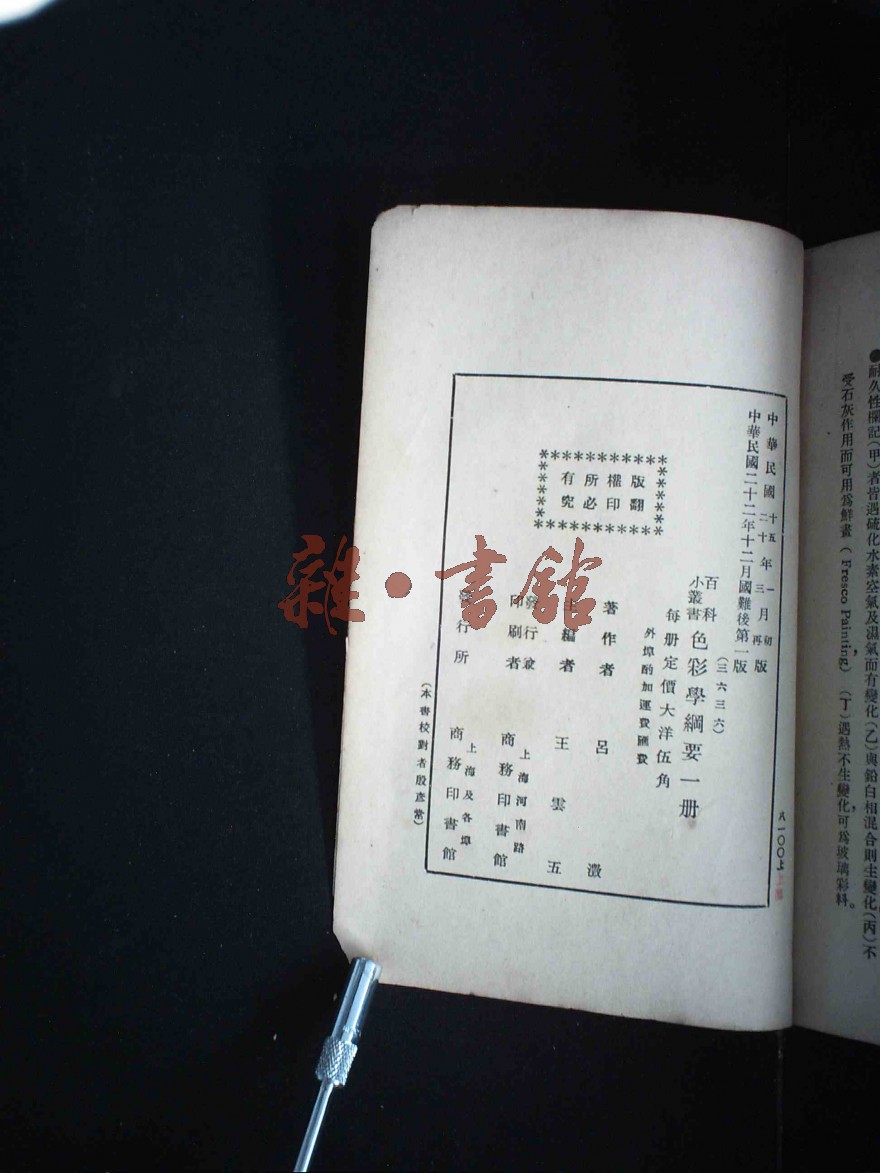 ●耐久性欄記(甲)者皆遇硫化水素空氣及濕氣而有變化(乙)與鉛白相混合則生變化(丙)不
受石灰作用而可用爲鮮畫(Fresco Painting),(丁)遇熱不生變化,可爲玻璃彩料。
八一〇〇上
中華民國十五年一月初版
二十年三月再版
中華民國二十二年十二月國難後第一版
版權所有
翻印必究
(三六三六)
百科小叢書
色彩學綱要一册
每册定價大洋伍角
外埠酌加運費匯費
著作者 呂澂
主編者 王雲五
發行兼印刷者 上海河南路 商務印書館
發行所 上海及各埠 商務印書館
(本書校對者殷彦常)
雜·書館